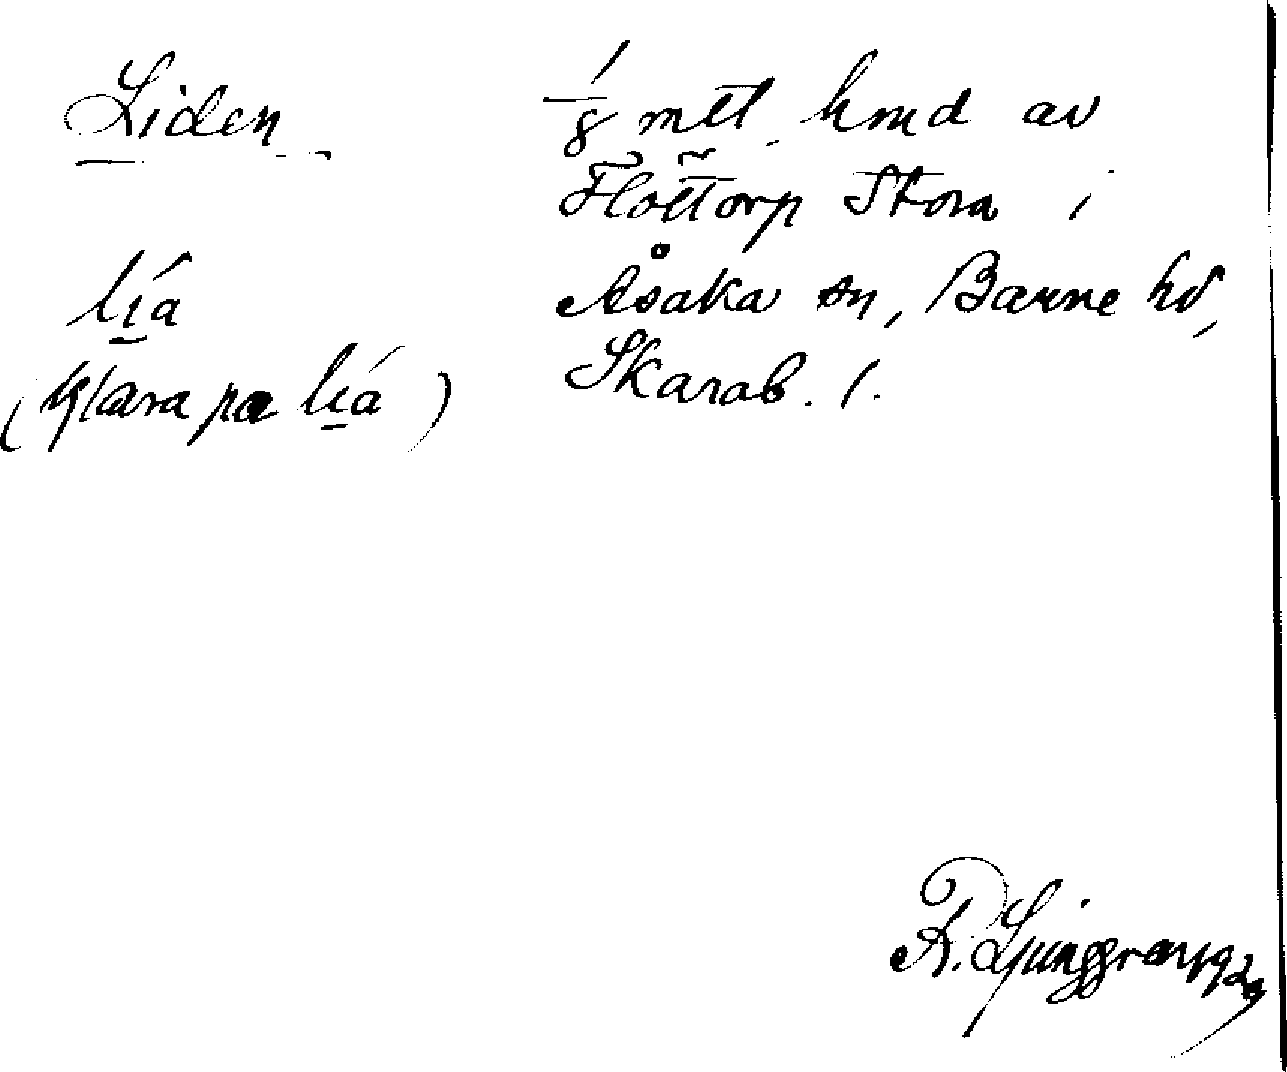 Liden
lía
( pa lía )
1/8 mtl hmd av
Flottorp Stora i
Åsaka sn, Barne hd,
Skarab. l.
R. Ljunggren